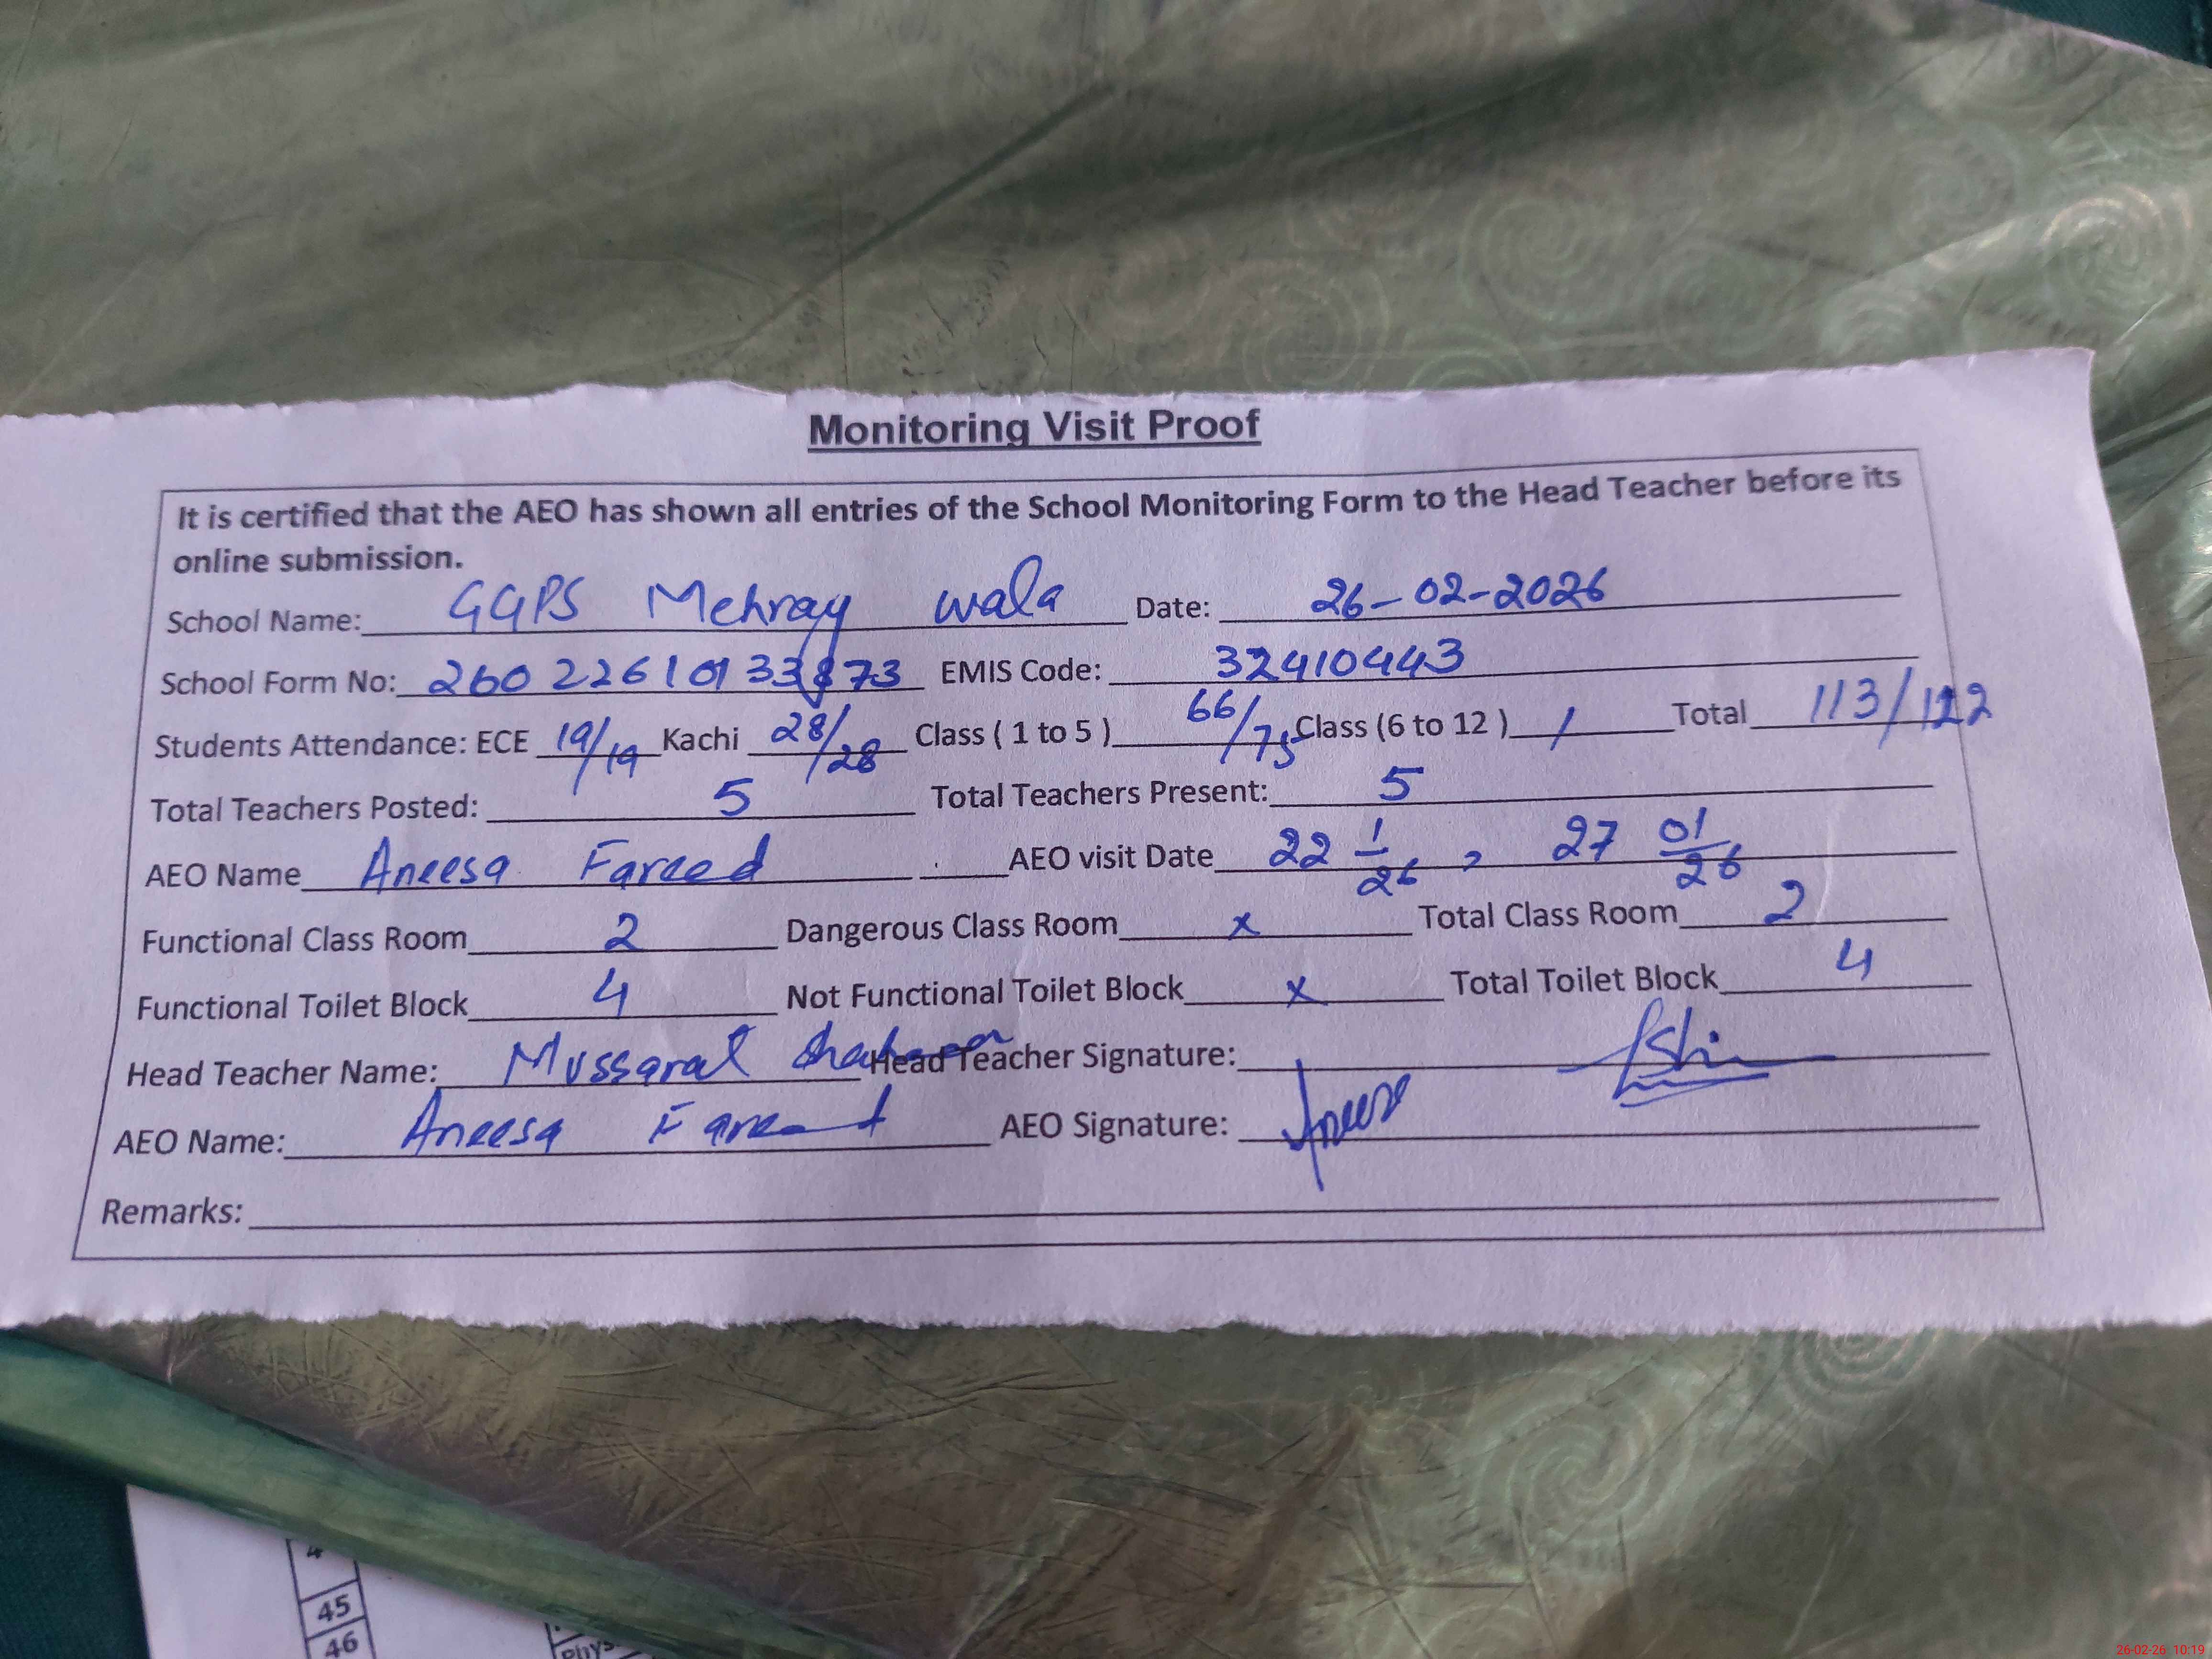 Monitoring Visit Proof
It is certified that the AEO has shown all entries of the School Monitoring Form to the Head Teacher before its
online submission.
School Name: GGPS Mehray wala Date: 26-02-2026
School Form No: 26022610133873 EMIS Code: 32410443
Students Attendance: ECE 19/19 Kachi 28/28 Class ( 1 to 5 ) 66/75 Class (6 to 12 ) / Total 113/122
Total Teachers Posted: 5 Total Teachers Present: 5
AEO Name Aneesa Fareed AEO visit Date 22 1/26 , 27 01/26
Functional Class Room 2 Dangerous Class Room x Total Class Room 2
Functional Toilet Block 4 Not Functional Toilet Block x Total Toilet Block 4
Head Teacher Name: Mussarat Head Teacher Signature:
AEO Name: Aneesa Fareed AEO Signature: Aneesa
Remarks:
4
45
46
Phys
26-02-26 10:19